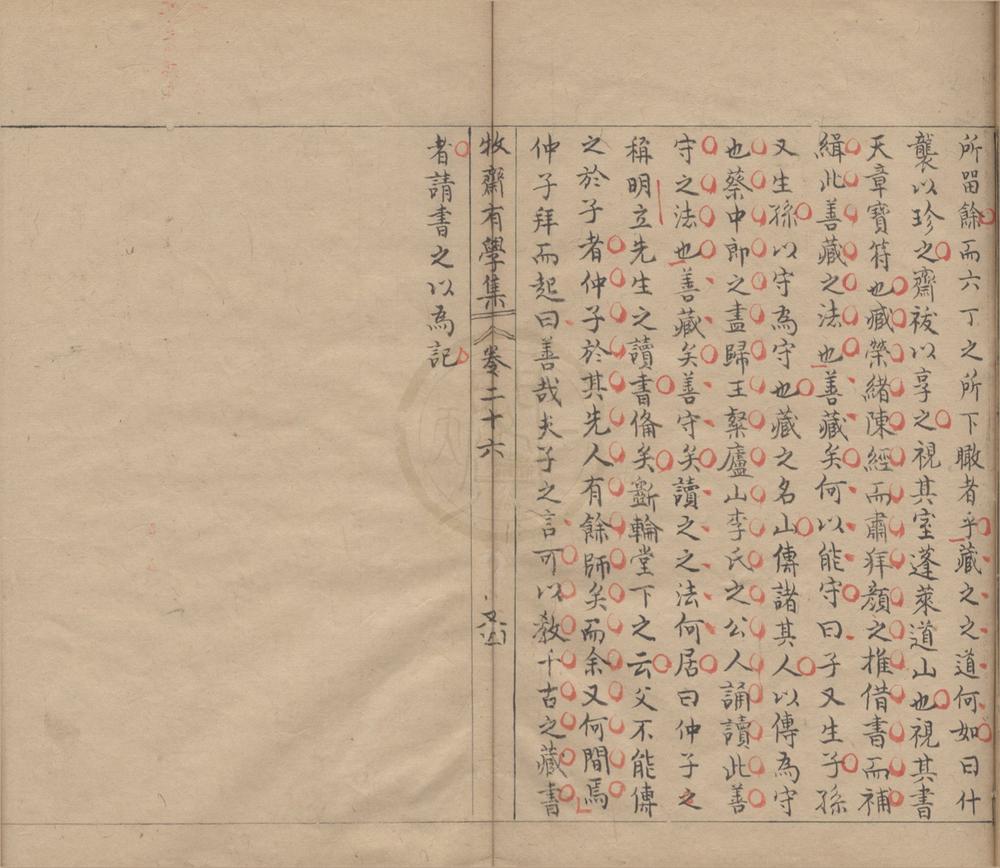 所畱餘而六丁之所下瞰者乎藏之之道何如曰什
襲以珍之齋祓以享之視其室蓬萊道山也視其書
天章寶符也臧榮緒陳經而肅拜顔之推借書而補
緝此善藏之法也善藏矣何以能守曰子又生子孫
又生孫以守為守也藏之名山傳諸其人以傳為守
也蔡中郎之盡歸王粲廬山李氏之公人誦讀此善
守之法也善藏矣善守矣讀之之法何居曰仲子之
稱明立先生之讀書俻矣斲輪堂下之云父不能傳
之於子者仲子於其先人有餘師矣而余又何間焉
仲子拜而起曰善哉夫子之言可以教千古之藏書
牧齋有學集 卷二十六
者請書之以為記